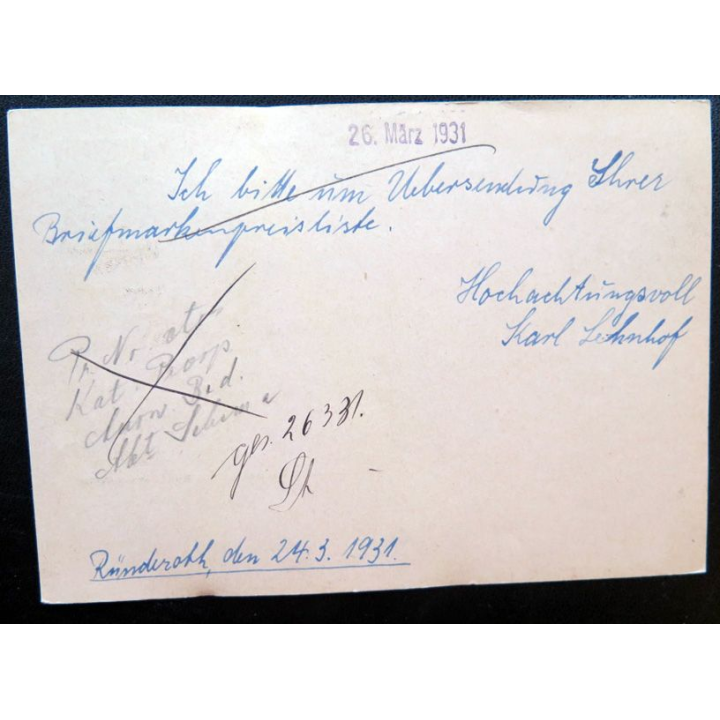 26. März 1931
Ich bitte um Uebersendung Ihrer
Briefmarkenpreisliste.
Hochachtungsvoll
Karl Lehnhof
Nr.
Kat.
ges. 26 3 31.
Ründeroth, den 24.3.1931.